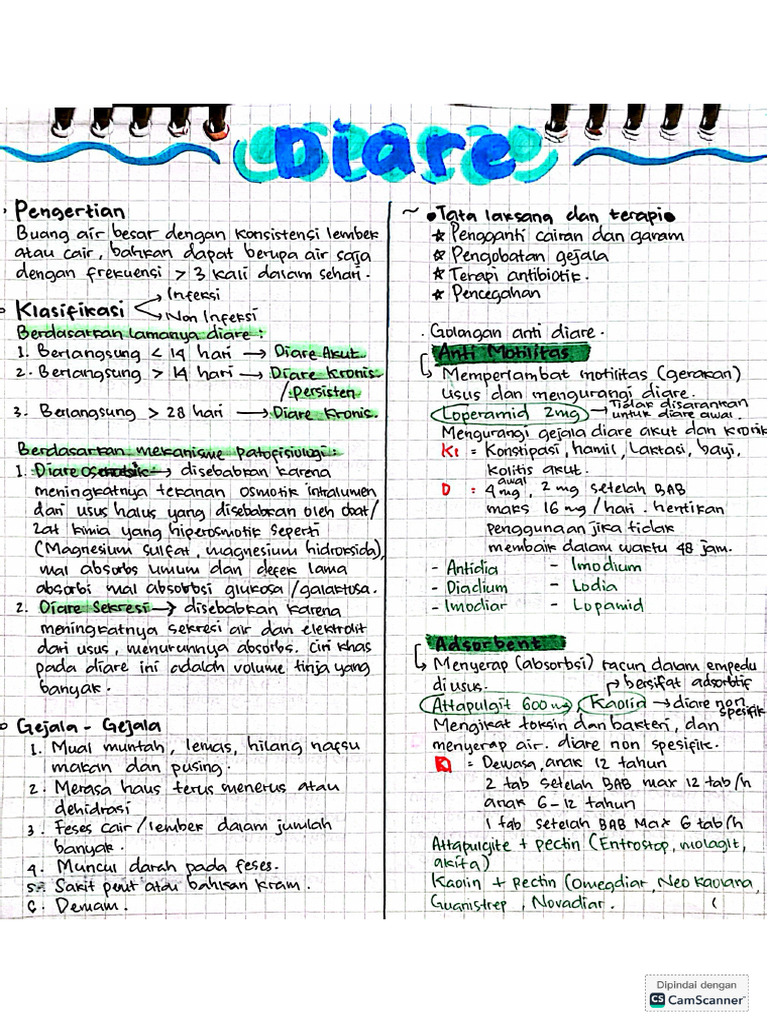 Diare
Pengertian
Buang air besar dengan konsistensi lembek
atau cair, bahkan dapat berupa air saja
dengan frekuensi > 3 kali dalam sehari.
Klasifikasi
Infeksi
Non Infeksi
Berdasarkan lamanya diare :
1. Berlangsung < 14 hari → Diare Akut
2. Berlangsung > 14 hari → Diare Kronis
/persisten
3. Berlangsung > 28 hari → Diare Kronis.
Berdasarkan mekanisme patofisiologi :
1. Diare → disebabkan karena
meningkatnya tekanan osmotik intralumen
dari usus halus yang disebabkan oleh obat/
zat kimia yang hiperosmotik seperti
(Magnesium sulfat, magnesium hidroksida),
mal absorbs umum dan defek lama
absorbi mal absorbsi glukosa/galaktosa.
2. Diare Sekresi → disebabkan karena
meningkatnya sekresi air dan elektrolit
dari usus, menurunnya absorbs. Ciri khas
pada diare ini adalah volume tinja yang
banyak.
Gejala - Gejala
1. Mual muntah, lemas, hilang nafsu
makan dan pusing.
2. Merasa haus terus menerus atau
dehidrasi
3. Feses cair/lembek dalam jumlah
banyak.
4. Muncul darah pada feses.
5. Sakit perut atau bahkan kram.
6. Demam.
~ • Tata laksana dan terapi •
☆ Pengganti cairan dan garam
☆ Pengobatan gejala
☆ Terapi antibiotik.
☆ Pencegahan
. Golongan anti diare.
Anti Motilitas
Memperlambat motilitas (gerakan)
usus dan mengurangi diare.
Loperamid 2mg → Tidak disarankan
untuk diare awal.
Mengurangi gejala diare akut dan kronik
KI = Konstipasi, hamil, Laktasi, bayi,
kolitis akut.
D : 4 mg awal, 2 mg setelah BAB
maks 16 mg/hari. hentikan
penggunaan jika tidak
membaik dalam waktu 48 jam.
- Antidia - Imodium
- Diadium - Lodia
- Imodiar - Lopamid
Adsorbent
Menyerap (absorbsi) racun dalam empedu
diusus.
bersifat adsorbtif
Attapulgit 600 mg, Kaolin → diare non
spesifik
Mengikat toksin dan bakteri, dan
menyerap air. diare non spesifik.
= Dewasa, anak 12 tahun
2 tab setelah BAB max 12 tab/h
anak 6-12 tahun
1 tab setelah BAB Max 6 tab/h
Attapulgite + pectin (Entrostop, molagit,
akita)
Kaolin + pectin (Omegdiar, Neo Kaolana,
Guanistrep, Novadiar.
Dipindai dengan
CS CamScanner